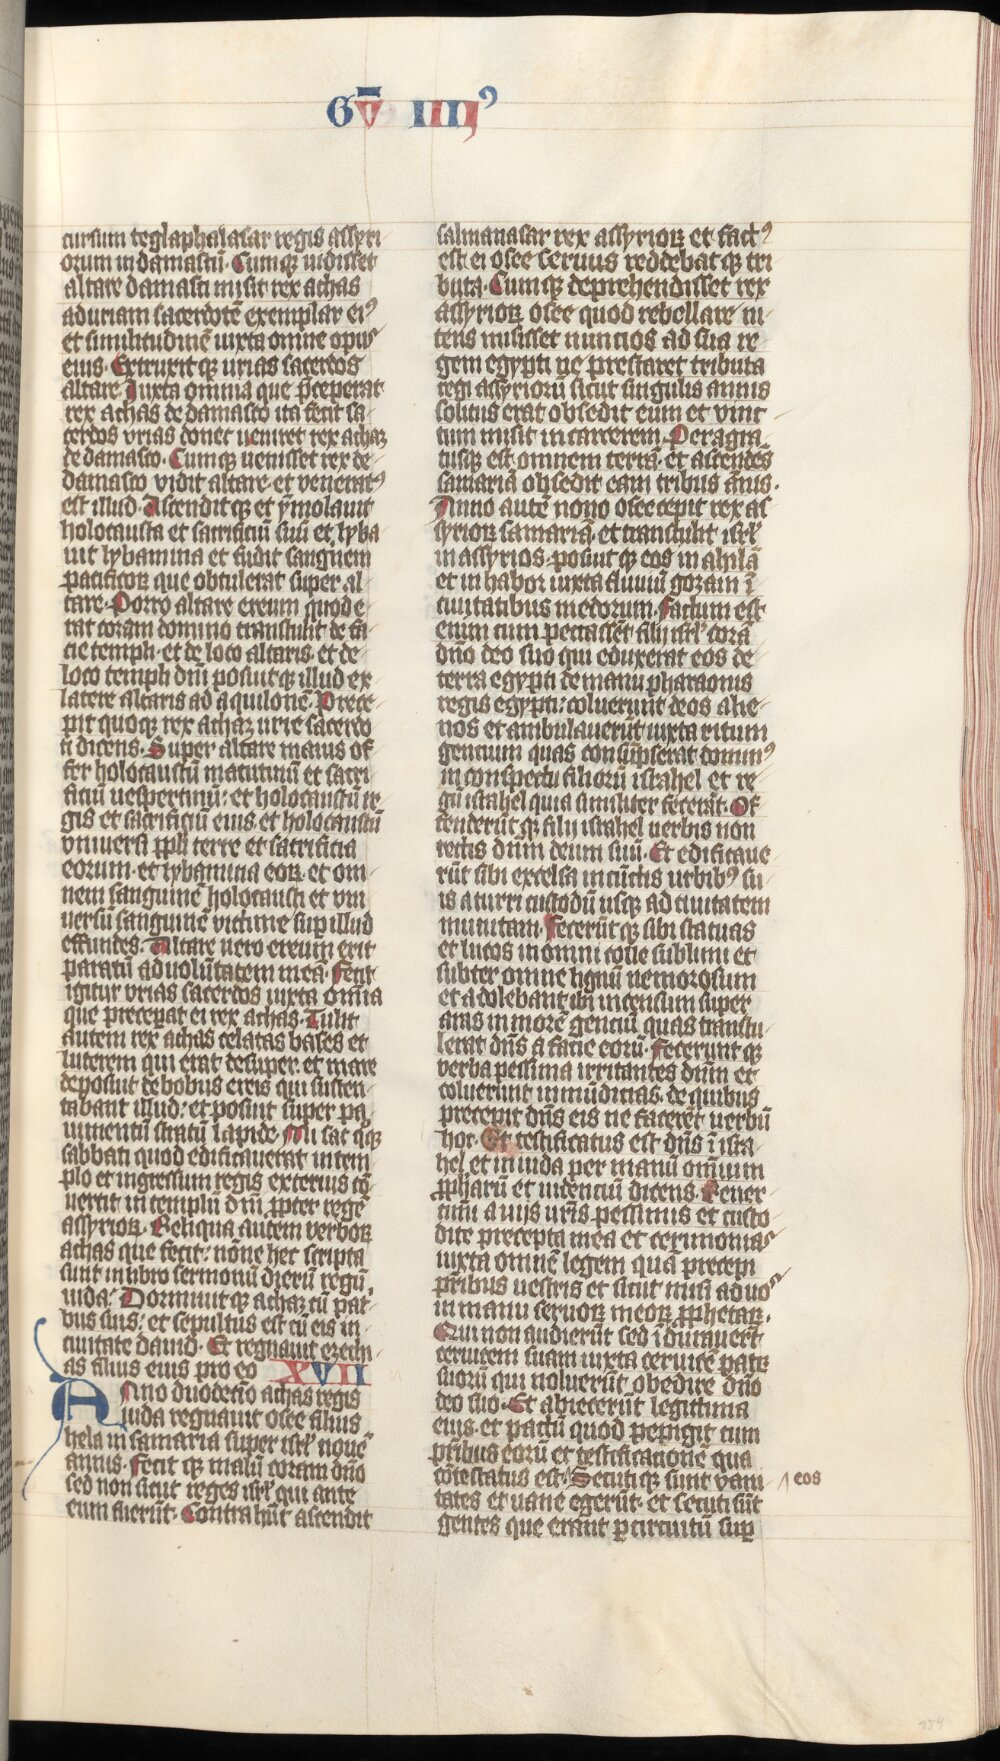 GV IIIIꝰ
cursum teglaphalasar regis assyri
orum in damascū. Cumqꝫ uidisset
altare damasci misit rex achas
ad uriam sacerdotē exemplar eiꝰ
et similitudinē iuxta omne opus
eius. Extruxitqꝫ urias sacerdos
altare. Iuxta omnia que p̄ceperat
rex achas de damasco ita fecit sa
cerdos vrias donec ueniret rex achaz
de damasco. Cumqꝫ uenisset rex de
damasco vidit altare et veneratꝰ
est illud. Ascenditqꝫ et ymolauit
holocausta et sacrificiū suū et lyba
uit lybamina et fudit sanguem
pacificoꝝ que obtulerat super al
tare. Porro altare ereum quod e
rat coram domino transtulit de fa
cie templi. et de loco altaris. et de
loco templi dn̄i posuitqꝫ illud ex
latere altaris ad aquilonē. Prece
pit quoqꝫ rex achaz urie sacerdo
ti dicens. Super altare maius of
fer holocaustū matutinū et sacri
ficiū uespertinū: et holocaustū re
gis et sacrificiū eius. et holocaustū
vniuersi ppl̄i terre et sacrificia
eorum. et lybamina eoꝝ. et om
nem sanguinē holocausti et vni
uersū sanguinē victime suꝑ illud
effundes. Altare uero ereum erit
paratū ad volūtatem meā. Fecit
igitur vrias sacerdos iuxta om̄ia
que preceꝑat ei rex achas. Tulit
autem rex achas celatas bases et
luterem qui erat desuper. et mare
deposuit de bobus ereis qui susten
tabant illud: et posuit super pa
uimentū stratū lapide. Musac qꝫ
sabbati quod edificauerat in tem
plo et ingressum regis exterius cō
uertit in templū dn̄i ꝓpter regē
assyrioꝝ. Reliqua autem verboꝝ
achas que fecit: nōne hec scripta
sunt in libro sermonū dierū regū
iuda: Dormiuitqꝫ achaz cū pat
bus suis: et sepultus est cū eis in
ciuitate dauid. Et regnauit ezechi
as filius eius pro eo XVII
Anno duodecīo achas regis
iuda regnauit osee filius
hela in samaria super isrl̄ nouē
annis. Fecitqꝫ malū coram dn̄o
sed non sicut reges isrl̄ qui ante
eum fuerūt. Contra hūc ascendit
salmanasar rex assyrioꝝ et factꝰ
est ei osee seruus reddebatqꝫ tri
buta. Cumqꝫ deprehendisset rex
assyrioꝝ osee quod rebellare ni
tens misisset nuncios ad sua re
gem egypti ne prestaret tributa
regi assyriorū sicut singulis annis
solitus erat obsedit eum et vinc
tum misit in carcerem. Peragra
tusqꝫ est omnem terrā. et ascendēs
samariā obsedit eam tribus ānis.
Anno autē nono osee cepit rex as
syrioꝝ samariā. et transtulit isrl̄
in assyrios. posuitqꝫ eos in ahilā
et in habor iuxta fluuiū gozam ī
ciuitatibus medorum. Factum est
enim cum peccassēt filij isrl̄ corā
dn̄o deo suo qui eduxerat eos de
terra egypti de manu pharaonis
regis egypti: coluerunt deos alie
nos et ambulauerūt iuxta ritum
gentium quas consūpserat dominꝰ
in conspectu filiorū israhel et re
gū israhel quia similiter fecerāt. Of
fenderūtqꝫ filij israhel uerbis non
rectis dn̄m deum suū. Et edificaue
rūt sibi excelsa in cūctis urbibꝰ su
is a turri custodū usqꝫ ad ciuitatem
munitam. Fecerūtqꝫ sibi statuas
et lucos in omni colle sublimi et
subter omne lignū nemorosum
et adolebant ibi incensum super
aras in morē gentiū quas transtu
lerat dn̄s a facie eorū. Feceruntqꝫ
verba pessima irritantes dn̄m et
coluerunt inmūdicias. de quibus
precepit dn̄s eis ne facerēt uerbū
hoc. Et testificatus est dn̄s ī isra
hel et in iuda per manū om̄ium
ꝓpharū et uidenciū dicens. Reuer
timī a vijs vr̄is pessimis et custo
dite precepta mea et cerimonias
iuxta omnē legem quā precepi
pr̄ibus vestris et sicut misi ad uos
in manu seruoꝝ meoꝝ ꝓphetaꝝ.
Qui non audierūt sed īdurauer̄t
ceruicem suam iuxta ceruicē patꝝ
suorū qui noluerūt obedire dn̄o
deo suo. Et abiecerūt legitima
eius. et pactū quod pepigit cum
pr̄ibus eorū et testificationē qua
cōtestatus est. Secutiqꝫ sunt vani eos
tates et uane egerūt. et secuti sūt
gentes que erant ꝑ circuitū suꝑ